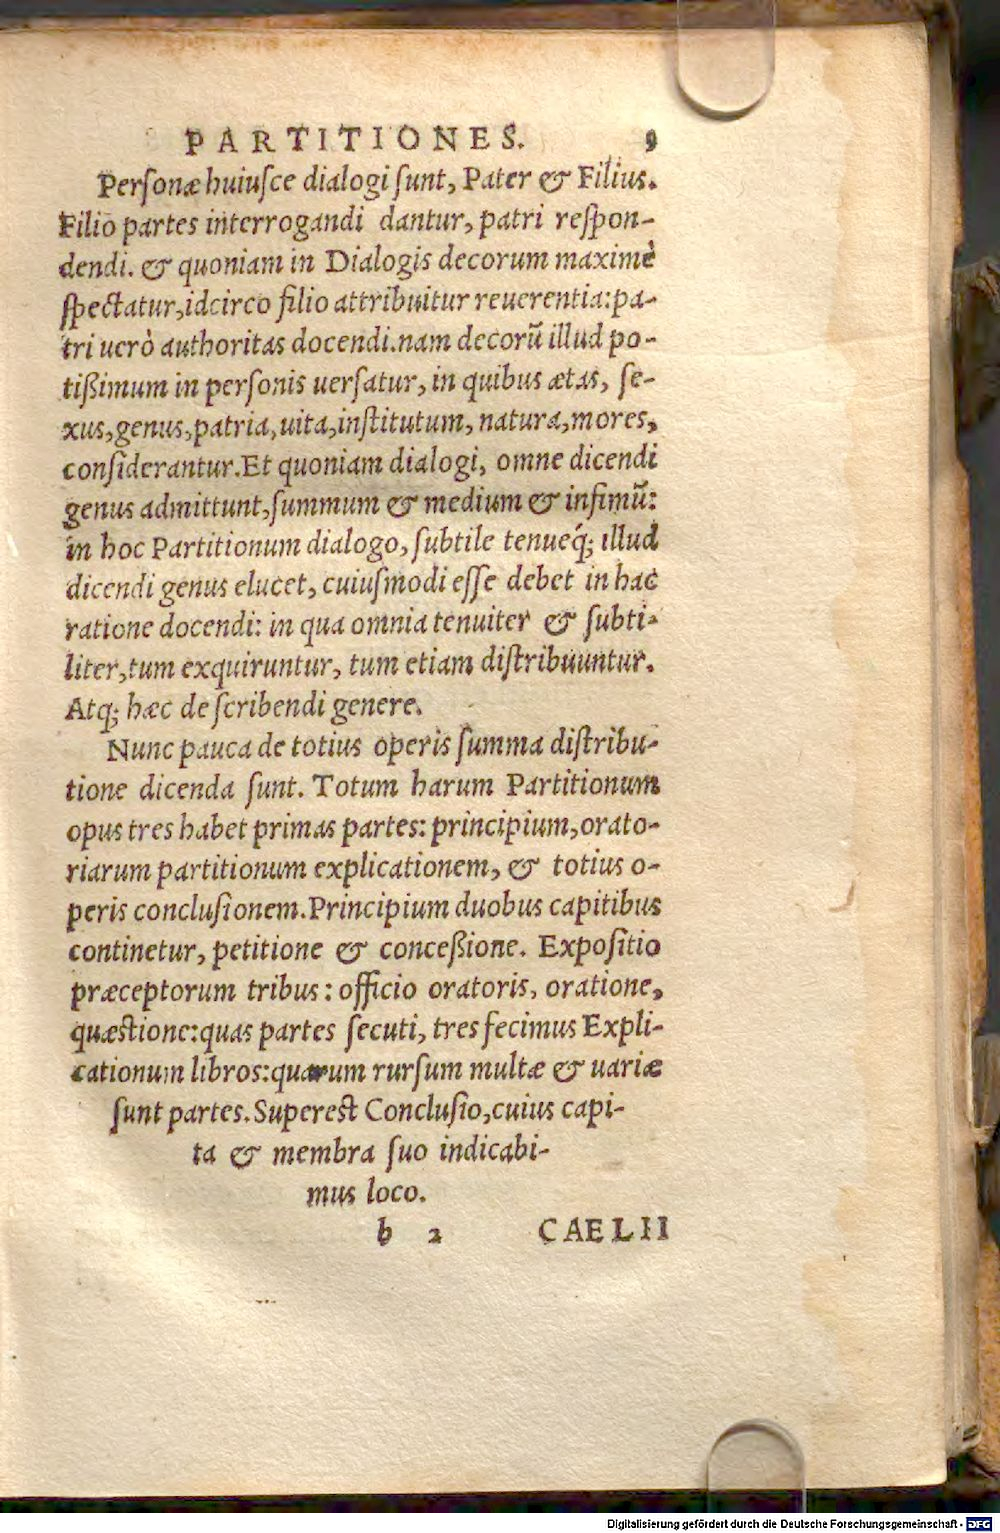 PARTITIONES. 9
Personæ huiusce dialogi sunt, Pater & Filius.
Filio partes interrogandi dantur, patri respon-
dendi. & quoniam in Dialogis decorum maximè
spectatur, idcirco filio attribuitur reuerentia: pa-
tri uerò authoritas docendi. nam decorũ illud po-
tißimum in personis uersatur, in quibus ætas, se-
xus, genus, patria, uita, institutum, natura, mores,
considerantur. Et quoniam dialogi, omne dicendi
genus admittunt, summum & medium & infimũ:
in hoc Partitionum dialogo, subtile tenueq́; illud
dicendi genus elucet, cuiusmodi esse debet in hac
ratione docendi: in qua omnia tenuiter & subti-
liter, tum exquiruntur, tum etiam distribuuntur.
Atq; hæc de scribendi genere.
Nunc pauca de totius operis summa distribu-
tione dicenda sunt. Totum harum Partitionum
opus tres habet primas partes: principium, orato-
riarum partitionum explicationem, & totius o-
peris conclusionem. Principium duobus capitibus
continetur, petitione & conceßione. Expositio
præceptorum tribus: officio oratoris, oratione,
quæstione: quas partes secuti, tres fecimus Expli-
cationum libros: quarum rursum multæ & uariæ
sunt partes. Superest Conclusio, cuius capi-
ta & membra suo indicabi-
mus loco.
b 2 CAELII
Digitalisierung gefördert durch die Deutsche Forschungsgemeinschaft - DFG